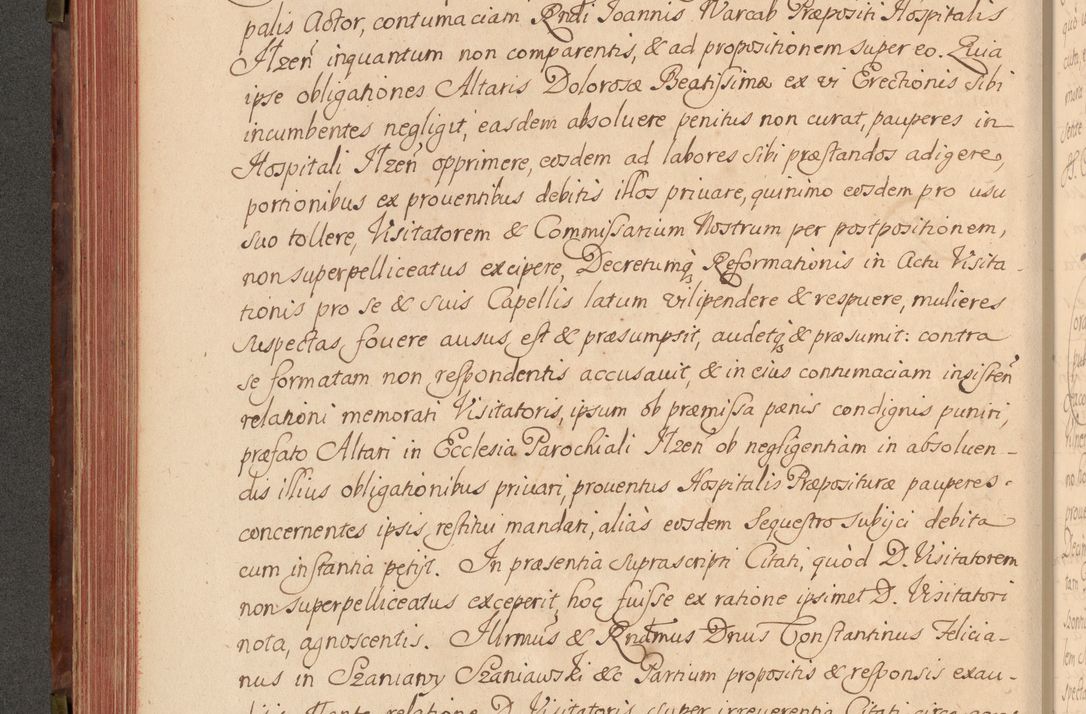 palis Actor, contumaciam Rndi Joannis Warcab Præpositi Hospitalis
Ilzen̄ inquantum non comparentis, & ad propositionem super eo. Quia
ipse obligationes Altaris Dolorosæ Beatissimæ ex vi Erectionis sibi
incumbentes negligit, easdem absoluere penitus non curat, pauperes in
Hospitali Ilzen̄ opprimere, eosdem ad labores sibi præstandos adigere,
portionibus ex prouentibus debitis illos priuare, quinimo eosdem pro usu
suo tollere, Visitatorem & Commissarium Nostrum per postpositionem,
non superpelliceatus excipere, Decretumq3 Reformationis in Actu Visita-
tionis pro se & suis Capellis latum vilipendere & respuere, mulieres
suspectas fouere ausus est & præsumpsit, audetq3 & præsumit: contra
se formatam non respondentis accusauit, & in eius contumaciam insisten̄
relationi memorati Visitatoris, ipsum ob præmissa pænis condignis puniri,
præfato Altari in Ecclesia Parochiali Ilzen̄ ob negligentiam in absoluen-
dis illius obligationibus priuari, prouentus Hospitalis Præposituræ pauperes
concernentes ipsis restitui mandari, aliàs eosdem Sequestro subijci debita
cum instantia petijt. In præsentia suprascripti Citati, quòd D. Visitatorem
non superpelliceatus exceperit, hoc fuisse ex ratione ipsimet D. Visitatori
nota, agnoscentis. Illrmus & Rndmus Dnus Constantinus Felicia-
nus in Szaniawy Szaniawski &c Partium propositis & responsis exau-